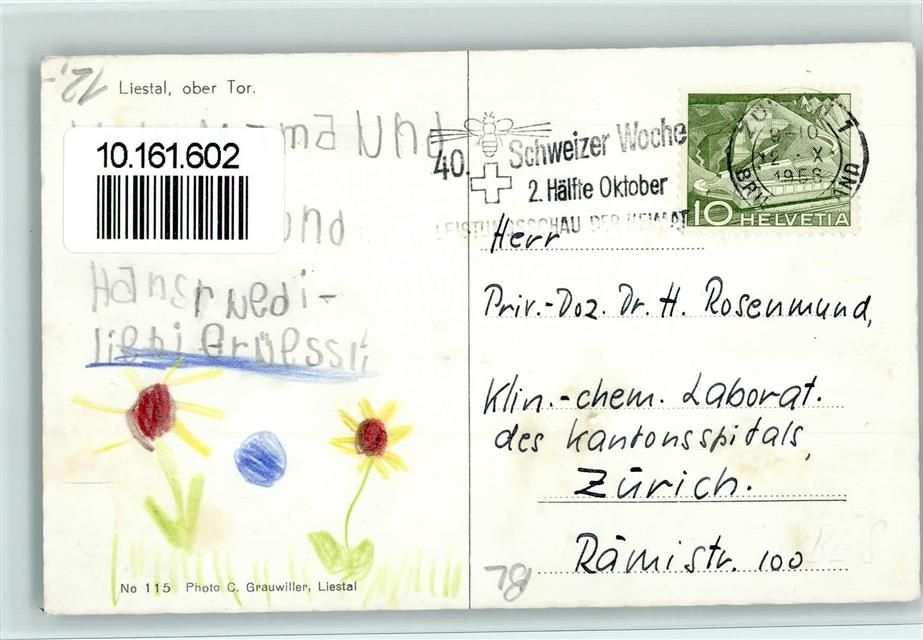 12,-
Liestal, ober Tor.
mama und
10.161.602
und
Hansruedi-
liebi Grüessli
No 115 Photo C. Grauwiller, Liestal
40. Schweizer Woche
2. Hälfte Oktober
LEISTUNGSSCHAU DER HEIMAT
1956
10 HELVETIA
Herr
Priv.-Doz. Dr. H. Rosenmund,
Klin.-chem. Laborat.
des Kantonsspitals,
Zürich.
Rämistr. 100
BL